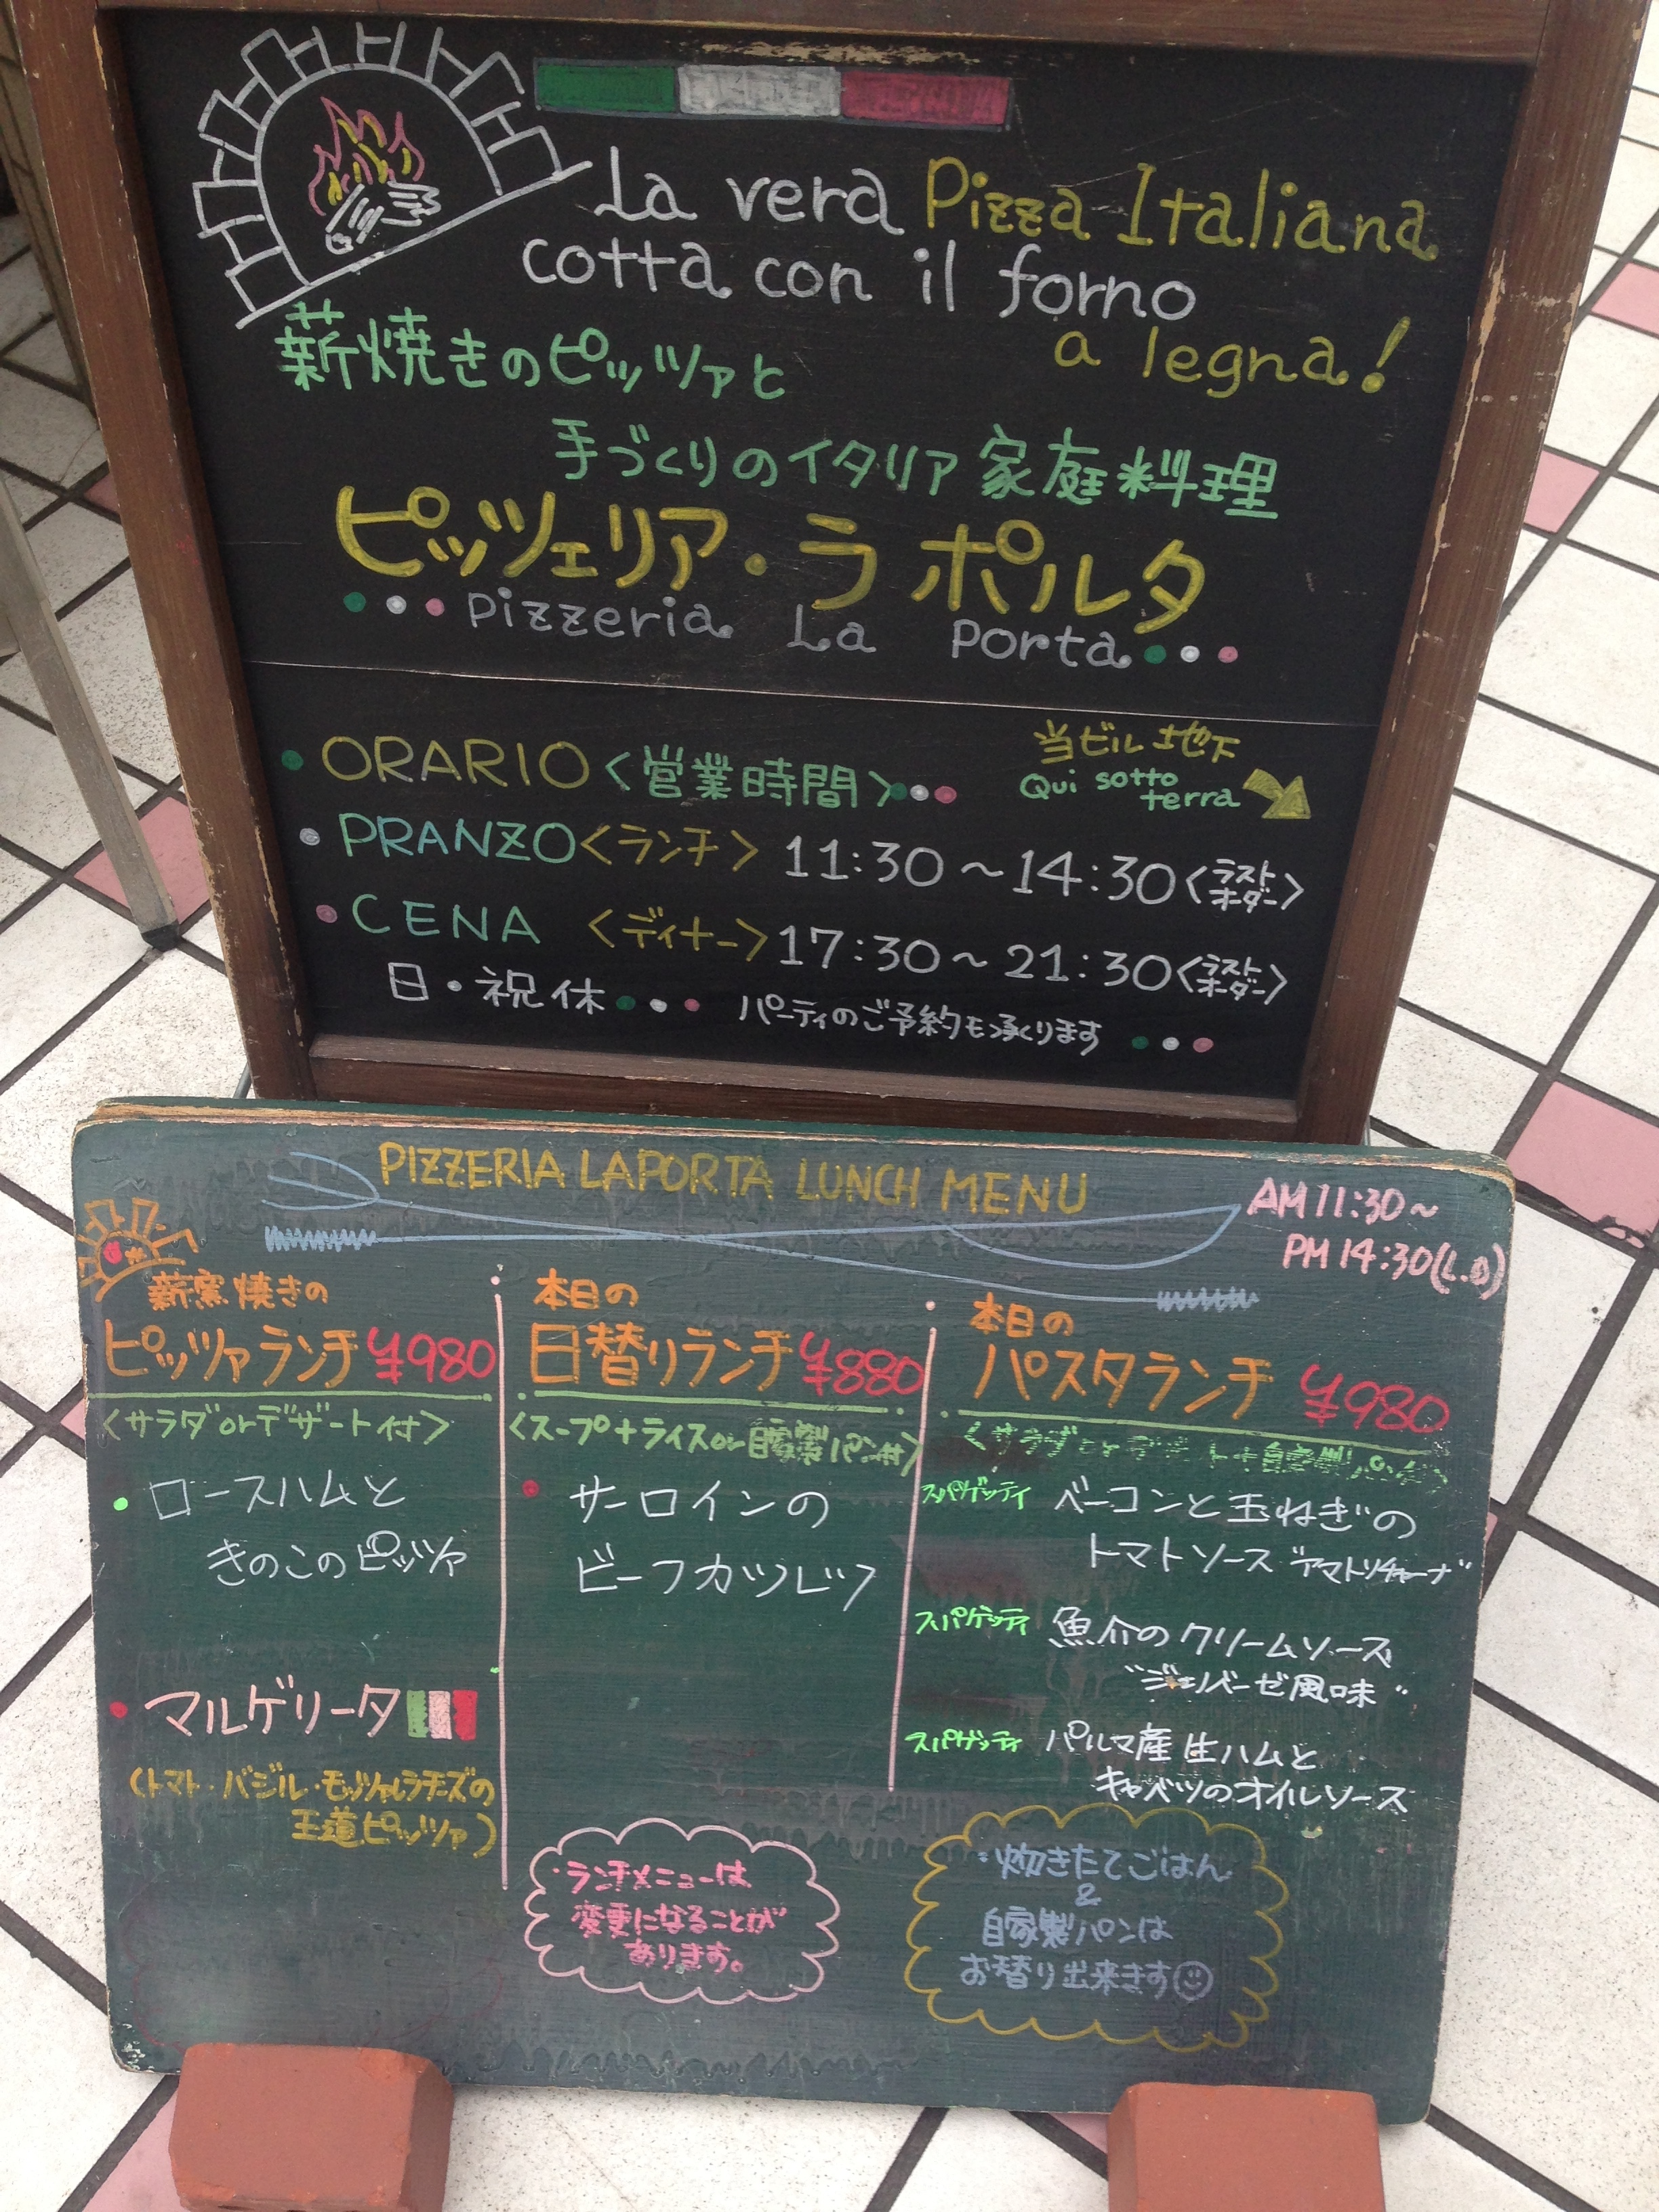 La vera Pizza Italiana
cotta con il forno
a legna!
薪焼きのピッツァと
手づくりのイタリア家庭料理
ピッツェリア・ラ ポルタ
Pizzeria La Porta
ORARIO〈営業時間〉
当ビル地下
Qui sotto
terra
PRANZO〈ランチ〉11:30～14:30〈ラストオーダー〉
CENA〈ディナー〉17:30～21:30〈ラストオーダー〉
日・祝休
パーティのご予約も承ります
PIZZERIA LAPORTA LUNCH MENU
AM11:30～
PM14:30(L.O)
薪窯焼きの
ピッツァランチ¥980
〈サラダorデザート付〉
ロースハムと
きのこのピッツァ
マルゲリータ
(トマト・バジル・モッツァレラチーズの
王道ピッツァ)
本日の
日替りランチ¥880
〈スープ+ライスor自家製パン付〉
サーロインの
ビーフカツレツ
本日の
パスタランチ ¥980
〈サラダorデザート+自家製パン付〉
スパゲッティ ベーコンと玉ねぎの
トマトソース"アマトリチャーナ"
スパゲッティ 魚介のクリームソース
"ジェノベーゼ風味"
スパゲッティ パルマ産生ハムと
キャベツのオイルソース
・ランチメニューは
変更になることが
あります。
炊きたてごはん
&
自家製パンは
お替り出来ます